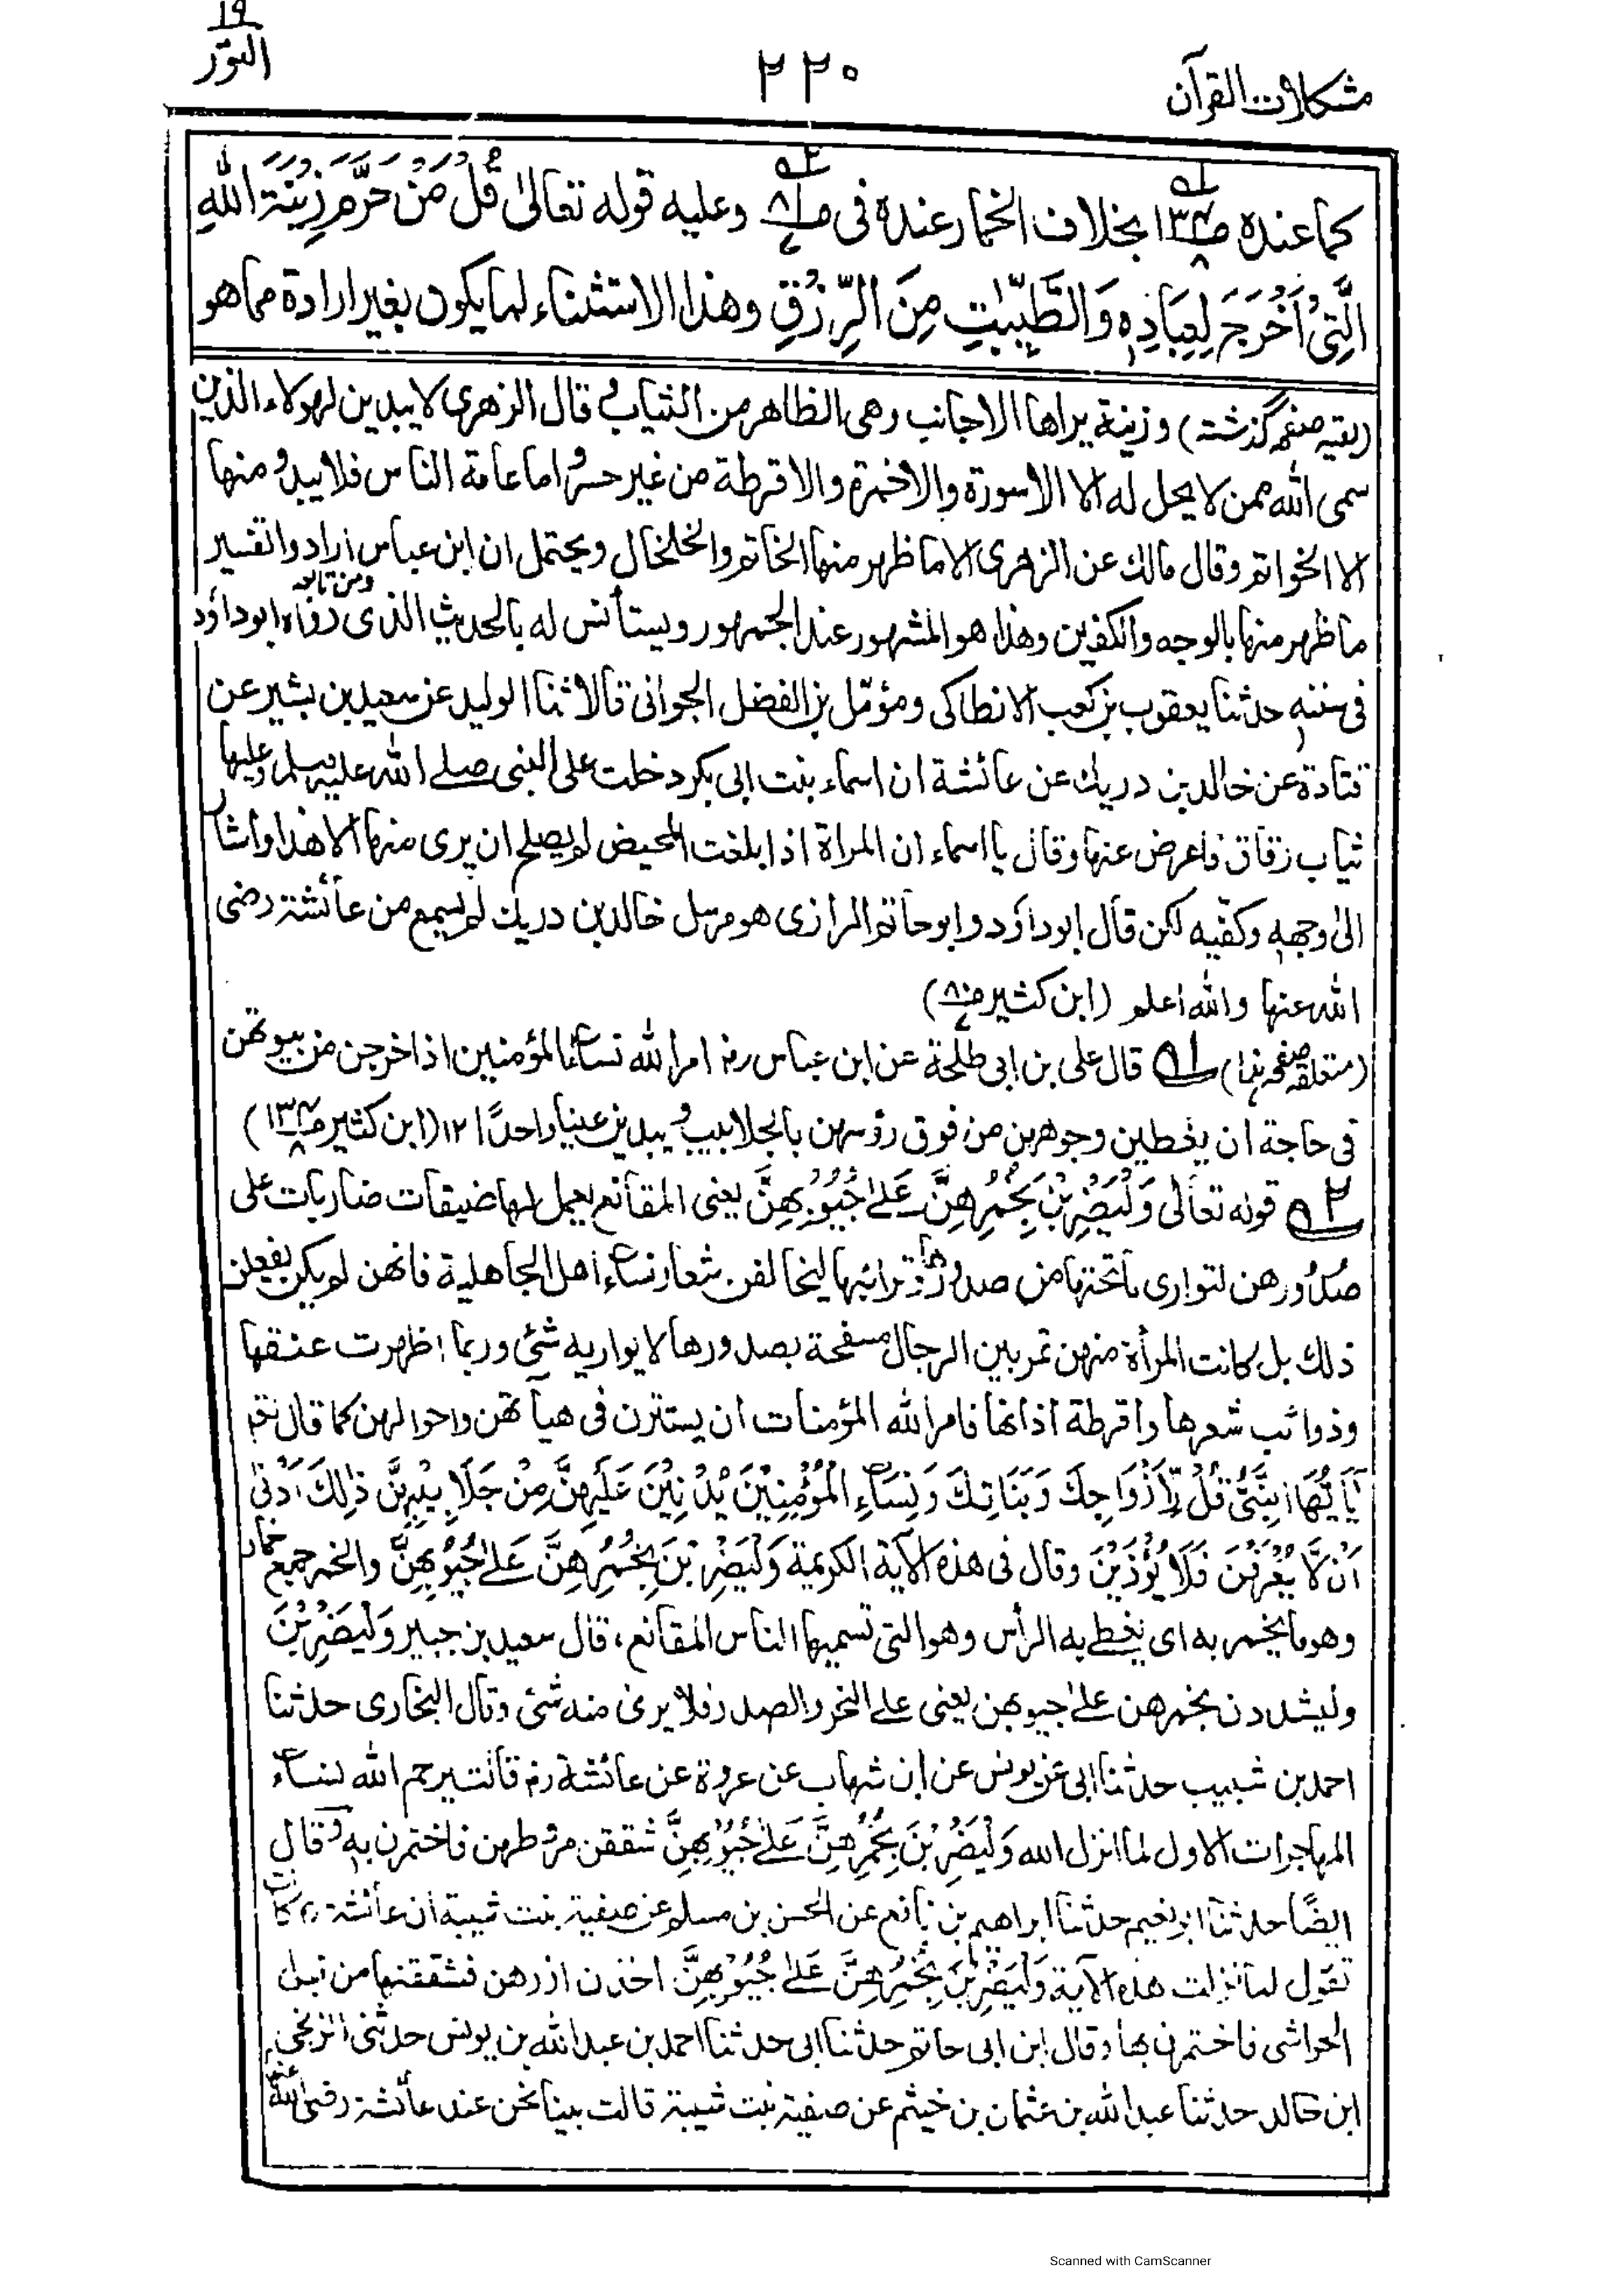 مشكلات القرآن
٢٢٠
١٩
النور
كما عنده ص١٣٤/٨ بخلاف الخمار عنده فى ص٨١/٧ وعليه قوله تعالىٰ قُلْ مَنْ حَرَّمَ زِيْنَةَ اللهِ
الَّتِىْ اَخْرَجَ لِعِبَادِهٖ وَالطَّيِّبٰتِ مِنَ الرِّزْقِ وهذا الاستثناء لما يكون بغير ارادة مما هو
(بقيہ صفحہ گذشتہ) وزينة يراها الاجانب وهى الظاهر من الثياب قال الزهرى لا يبدين لهولاء الذين
سمى الله ممن لا يحل له الا الاسورة والاخمرة والاقرطة من غير حسر واما عامة الناس فلا يبدو منها
الا الخواتم وقال مالك عن الزهرى الا ما ظهر منها الخاتم والخلخال ويحتمل ان ابن عباس ومن تابعه ارادوا تفسير
ما ظهر منها بالوجه والكفين وهذا هو المشهور عند الجمهور ويستأنس له بالحديث الذى رواه ابو داؤد
فى سننه حدثنا يعقوب بن كعب الانطاكى ومؤمّل بن الفضل الجوانى قالا ثنا الوليد عن سعيد بن بشير عن
قتادة عن خالد بن دريك عن عائشة ان اسماء بنت ابى بكر دخلت على النبى صلے الله عليه وسلم وعليها
ثياب رقاق فاعرض عنها وقال يا اسماء ان المراة اذا بلغت المحيض لم يصلح ان يرى منها الا هذا واشار
الىٰ وجهه وكفّيه لكن قال ابو داؤد وابو حاتم الرازى هو مرسل خالد بن دريك لم يسمع من عائشة رضى
الله عنها والله اعلم (ابن كثير ص٨١/٧)
(متعلقہ صفحہ ہذا) ۱ه قال على بن ابى طلحة عن ابن عباس رض امر الله نساء المؤمنين اذا خرجن من بيوتهن
فى حاجة ان يغطين وجوههن من فوق رؤسهن بالجلابيب ويبدين عينا واحدًا ١٢ (ابن كثير ص١٣٤/٨)
۲ه قوله تعالىٰ وَلْيَضْرِبْنَ بِخُمُرِهِنَّ عَلىٰ جُيُوْبِهِنَّ يعنى المقانع يعمل لها ضيقات ضاربات على
صدورهن لتوارى ما تحتها من صدورها وترائبها ليخالفن شعار نساء اهل الجاهلية فانهن لم يكن يفعلن
ذلك بل كانت المرأة منهن تمر بين الرجال مسفحة بصدورها لا يواريه شئ وربما اظهرت عنقها
وذوائب شعرها واقرطة اذانها فامر الله المؤمنات ان يستترن فى هيأتهن واحوالهن كما قال تعم
يٰاَيُّهَا النَّبِىُّ قُلْ لِّاَزْوَاجِكَ وَبَنَاتِكَ وَنِسَاءِ الْمُؤْمِنِيْنَ يُدْنِيْنَ عَلَيْهِنَّ مِنْ جَلَابِيْبِهِنَّ ذٰلِكَ اَدْنىٰ
اَنْ لَّا يُعْرَفْنَ فَلَا يُؤْذَيْنَ وقال فى هذه الآية الكريمة وَلْيَضْرِبْنَ بِخُمُرِهِنَّ عَلىٰ جُيُوْبِهِنَّ والخمر جمع خمار
وهو ما يخمر به اى يغطے به الرأس وهو التى تسميها الناس المقانع، قال سعيد بن جبير وَلْيَضْرِبْنَ
وليشددن بخمرهن علىٰ جيوبهن يعنى علے النحر والصدر فلا يرىٰ منه شئ وقال البخارى حدثنا
احمد بن شبيب حدثنا ابى عن يونس عن ابن شهاب عن عروة عن عائشة رض قالت يرحم الله نساء
المهاجرات الاول لما انزل الله وَلْيَضْرِبْنَ بِخُمُرِهِنَّ عَلىٰ جُيُوْبِهِنَّ شققن مروطهن فاختمرن به وقال
ايضًا حدثنا ابو نعيم حدثنا ابراهيم بن نافع عن الحسن بن مسلم عن صفية بنت شيبة ان عائشة رض كانت
تقول لما نزلت هذه الآية وَلْيَضْرِبْنَ بِخُمُرِهِنَّ عَلىٰ جُيُوْبِهِنَّ اخذن ازرهن فشققنها من قبل
الحواشى فاختمرن بها وقال ابن ابى حاتم حدثنا ابى حدثنا احمد بن عبد الله بن يونس حدثنى الزنجى
ابن خالد حدثنا عبد الله بن عثمان بن خيثم عن صفية بنت شيبة قالت بينا نحن عند عائشة رضى الله عنها
Scanned with CamScanner